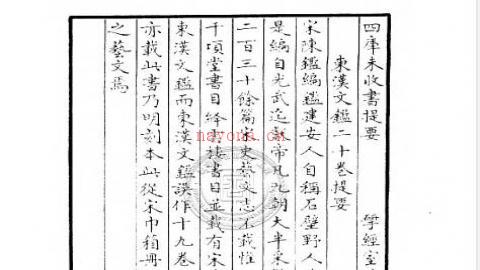 四庫未收書提要　揅經室
東漢文鑑二十卷提要
宋陳鑑編鑑建安人自稱石壁野人
是編自光武迄 帝凡九朝大半東
二百三十餘篇宋史藝文志不載惟
千頃堂書目絳雲樓書目並載有宋
東漢文鑑而東漢文鑑誤作十九卷
亦載此書乃明刻本此從宋巾箱冊
之藝文焉
nayona.cn